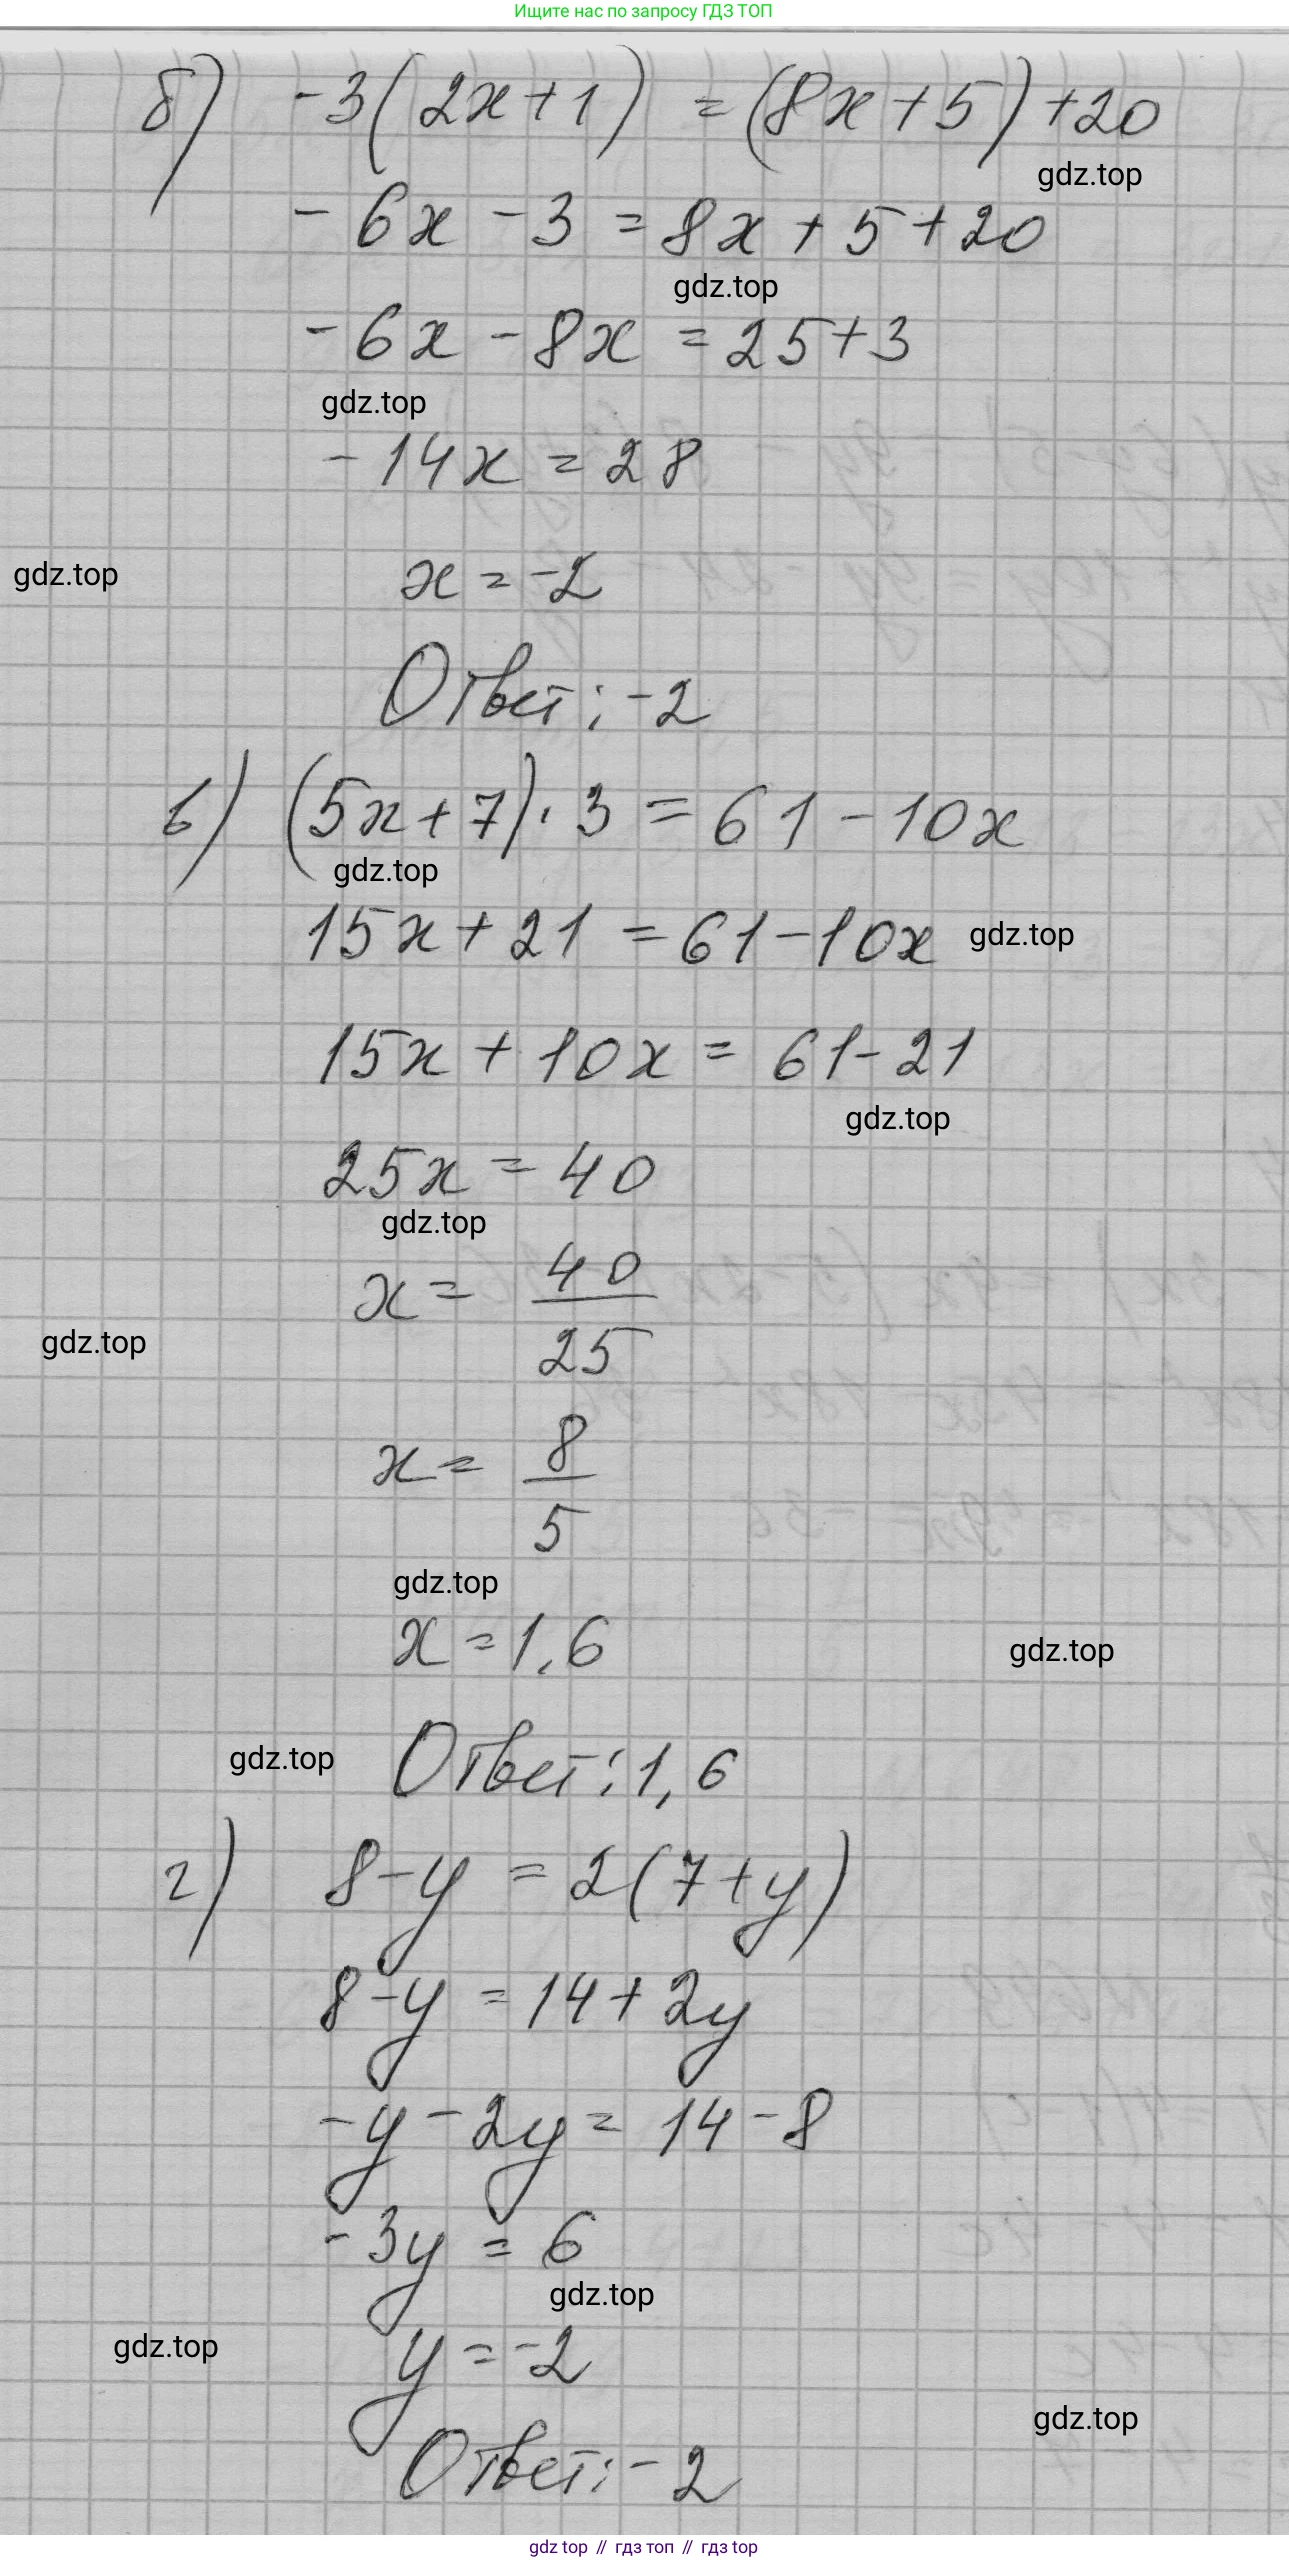 Ищите нас по запросу ГДЗ ТОП
б) -3(2x+1) = (8x+5)+20
gdz.top
-6x-3 = 8x+5+20
gdz.top
-6x-8x = 25+3
gdz.top
-14x = 28
gdz.top
x = -2
Ответ: -2
в) (5x+7)·3 = 61-10x
gdz.top
15x+21 = 61-10x
gdz.top
15x+10x = 61-21
gdz.top
25x = 40
gdz.top
x = 40/25
gdz.top
x = 8/5
gdz.top
x = 1,6
gdz.top
gdz.top
Ответ: 1,6
г) 8-y = 2(7+y)
8-y = 14+2y
-y-2y = 14-8
-3y = 6
gdz.top
gdz.top
y = -2
gdz.top
Ответ: -2
gdz top // гдз топ // гдз top